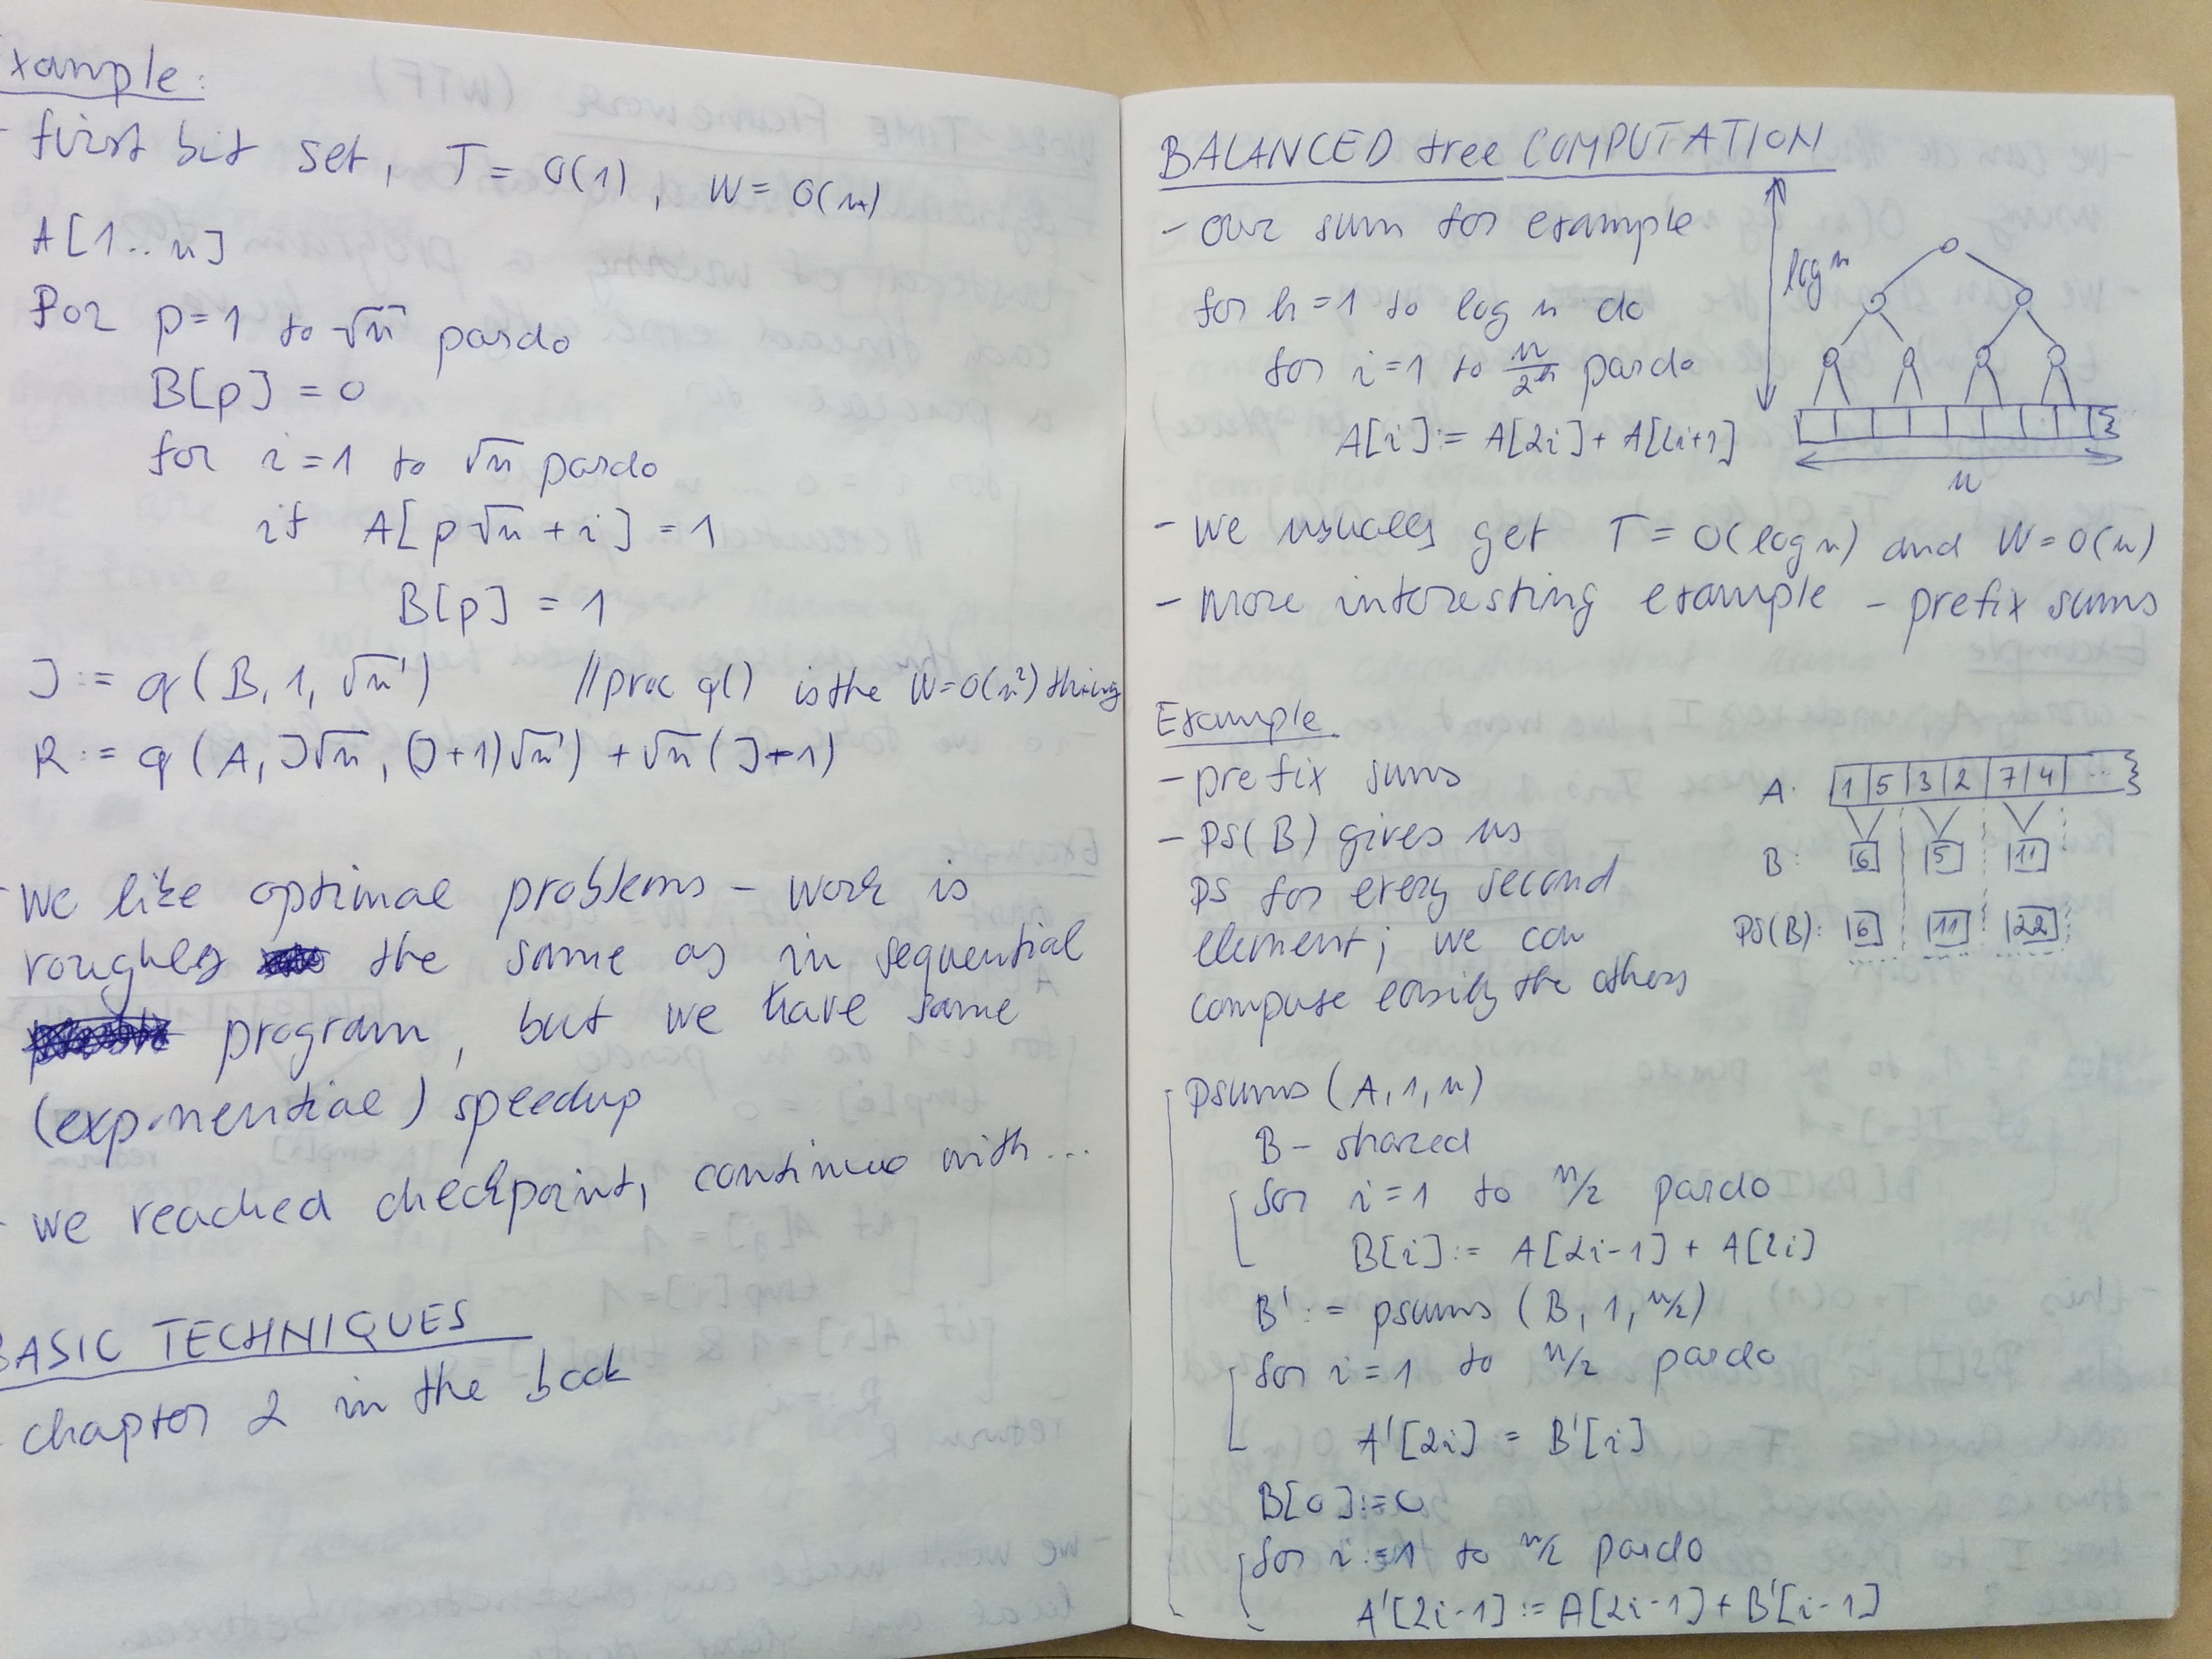 xample:
- first bit set, T = O(1), W = O(n)
A[1..n]
for p=1 to √n pardo
B[p] = 0
for i=1 to √n pardo
if A[p√n + i] = 1
B[p] = 1
J := q(B, 1, √n) //proc q() is the W=O(n²) thing
R := q(A, J√n, (J+1)√n) + √n(J+1)
- we like optimal problems - work is
roughly the same as in sequential
program, but we have some
(exponential) speedup
- we reached checkpoint, continue with...
BASIC TECHNIQUES
- chapter 2 in the book
BALANCED tree COMPUTATION
- our sum for example
for h=1 to log n do
for i=1 to n/2^h pardo
A[i] := A[2i] + A[2i+1]
log n
n
- we usually get T = O(log n) and W = O(n)
- more interesting example - prefix sums
Example
- prefix sums
- PS(B) gives us
PS for every second
element; we can
compute easily the others
A: 1 5 3 2 7 4 ...
B: 6 5 11
PS(B): 6 11 22
psums (A, 1, n)
B - shared
for i=1 to n/2 pardo
B[i] := A[2i-1] + A[2i]
B' := psums (B, 1, n/2)
for i=1 to n/2 pardo
A'[2i] = B'[i]
B[0] := 0
for i=1 to n/2 pardo
A'[2i-1] := A[2i-1] + B'[i-1]